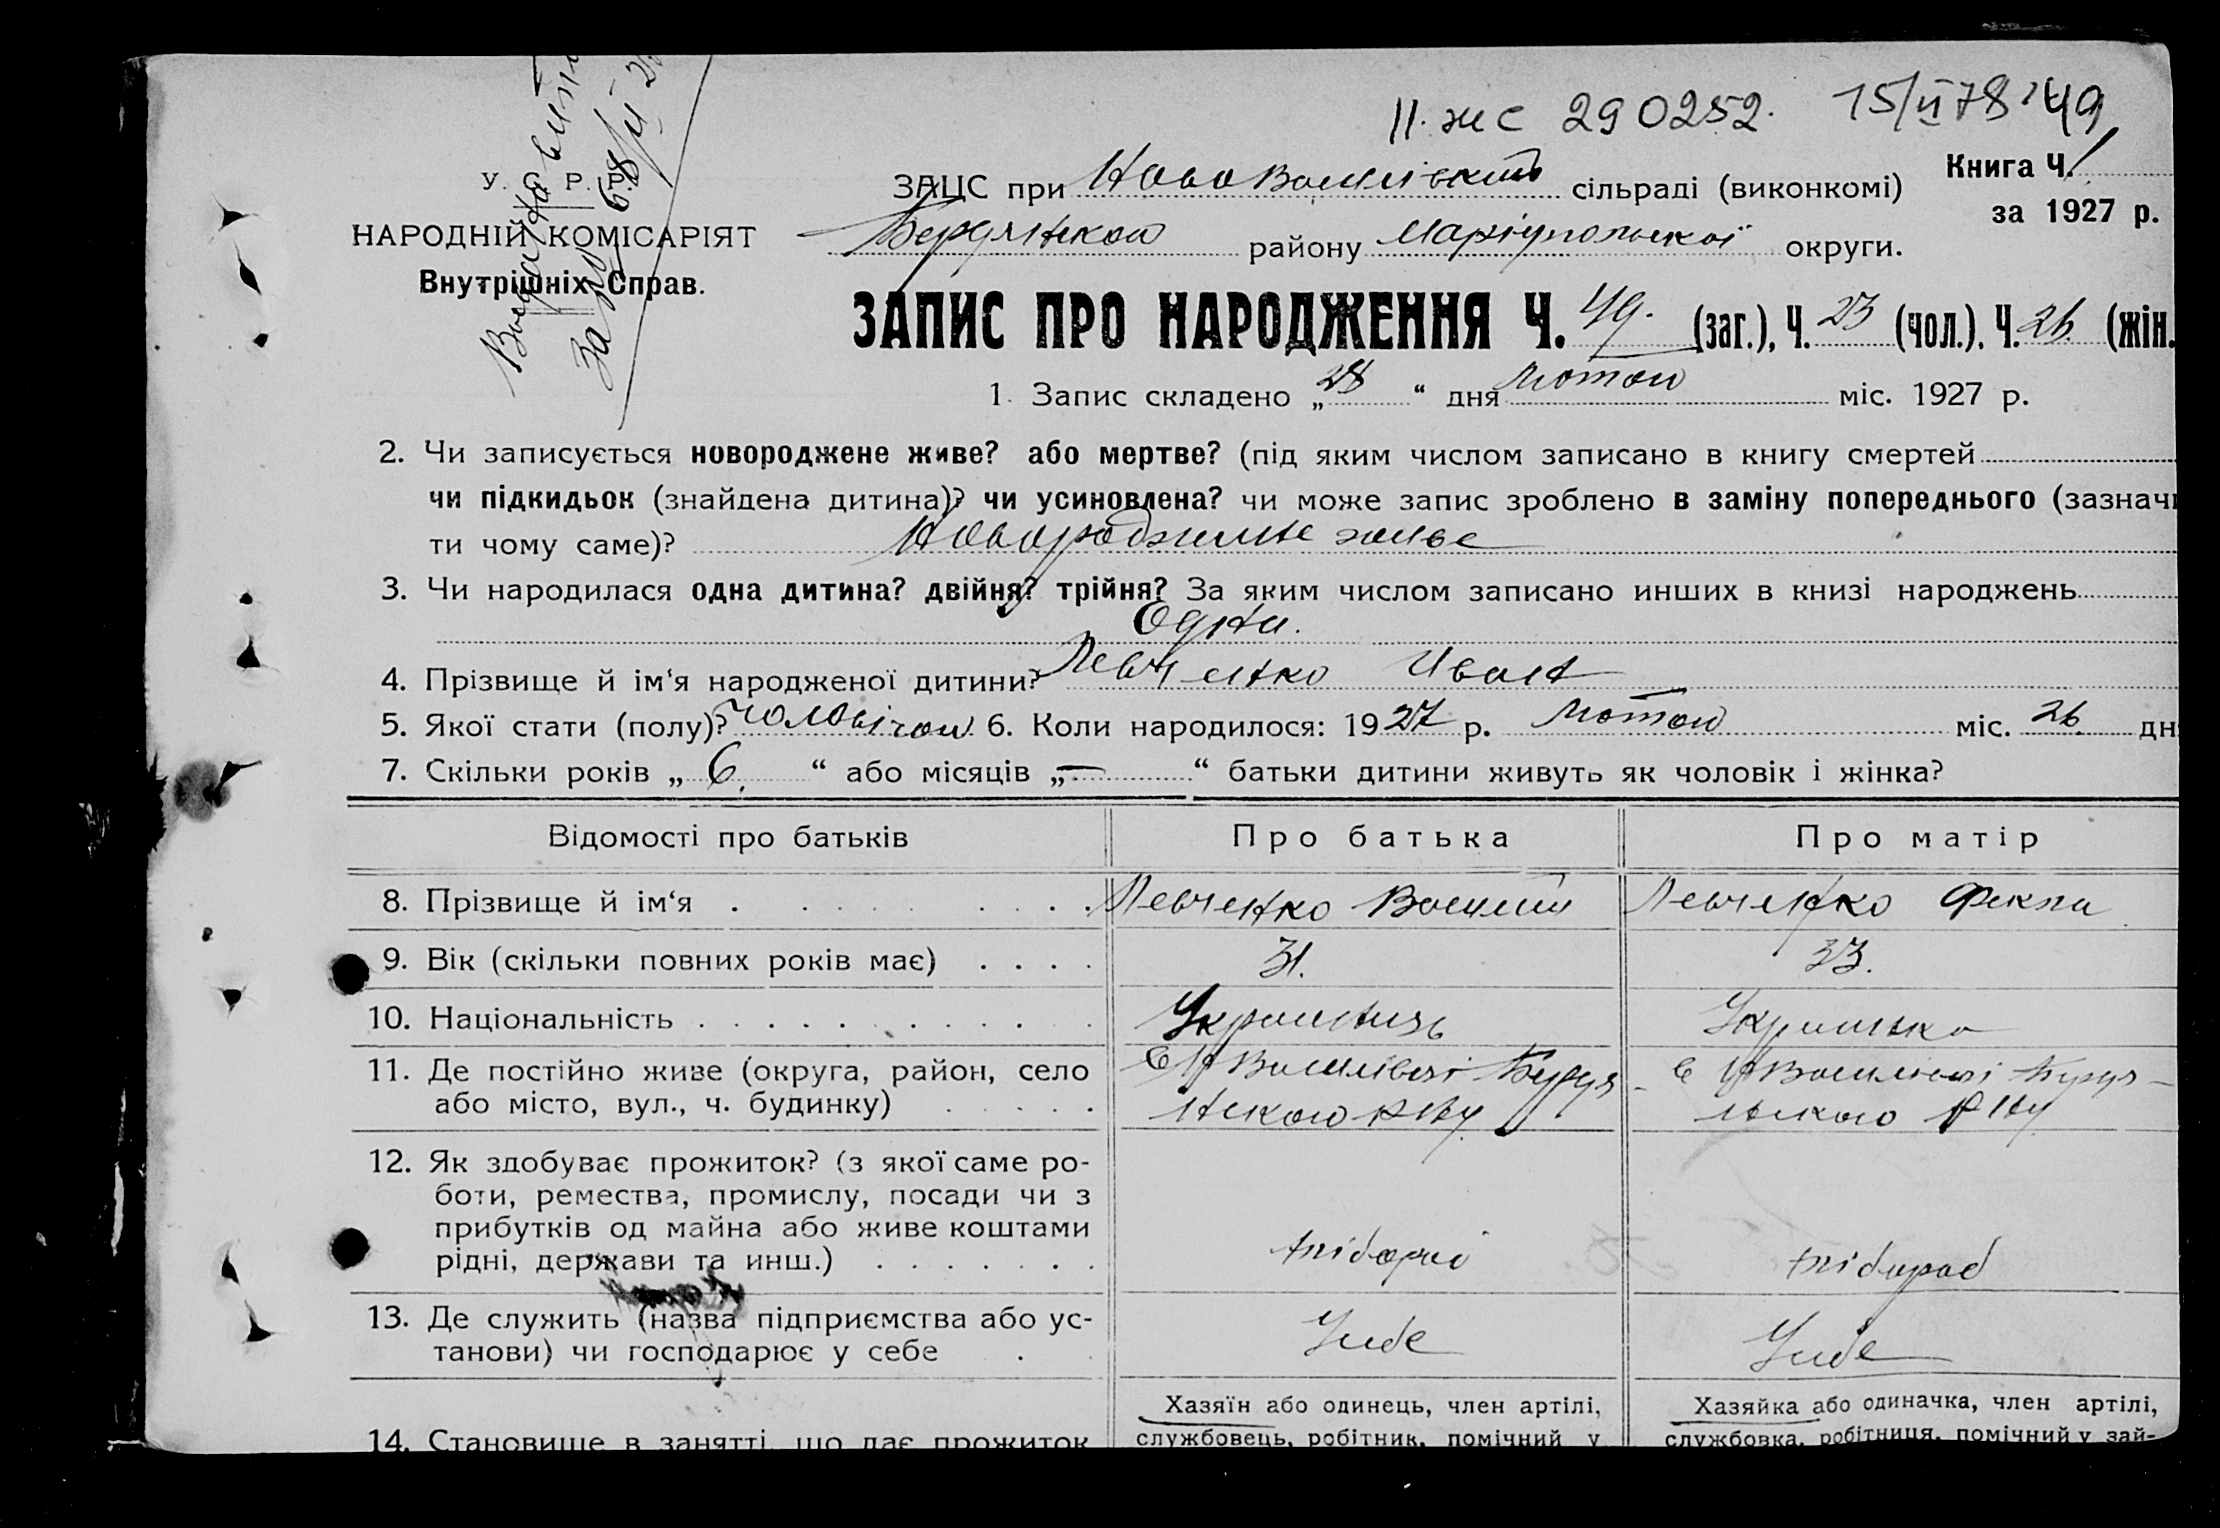 II. жс 290252. 15/II 78 49
У. С. Р. Р.
НАРОДНІЙ КОМІСАРІЯТ
Внутрішніх Справ.
ЗАЦС при Ново Василівській сільраді (виконкомі)
Книга Ч. 1
за 1927 р.
Бердянкои району Маріупольскої округи.
ЗАПИС ПРО НАРОДЖЕННЯ Ч. 49. (заг.), Ч. 23 (чол.), Ч. 26. (жін.
1. Запис складено „28“ дня Лютои міс. 1927 р.
2. Чи записується новороджене живе? або мертве? (під яким числом записано в книгу смертей
чи підкидьок (знайдена дитина)? чи усиновлена? чи може запис зроблено в заміну попереднього (зазначи
ти чому саме)? живе
3. Чи народилася одна дитина? двійня? трійня? За яким числом записано инших в книзі народжень
Одна.
4. Прізвище й ім‘я народженої дитини? Левченко Иван
5. Якої стати (полу)? 6. Коли народилося: 1927 р. Лютои міс. 26. дн
7. Скільки років „6“ або місяців „—“ батьки дитини живуть як чоловік і жінка?
Відомості про батьків Про батька Про матір
8. Прізвище й ім‘я Левченко Василий Левченко Фекла
9. Вік (скільки повних років має) 31. 33.
10. Національність Українць Українка
11. Де постійно живе (округа, район, село С Н Василівці Бердя С Н Василівці Бердя-
або місто, вул., ч. будинку) нского р-ну нского р-ну
12. Як здобуває прожиток? (з якої саме ро-
боти, ремества, промислу, посади чи з
прибутків од майна або живе коштами
рідні, держави та инш.) хлібороб хлібороб
13. Де служить (назва підприємства або ус-
танови) чи господарює у себе У себе У себе
Хазяїн або одинець, член артілі, Хазяйка або одиначка, член артілі,
14. Становище в занятті, що дає прожиток службовець, робітник, помічний у службовка, робітниця, помічний у зай-